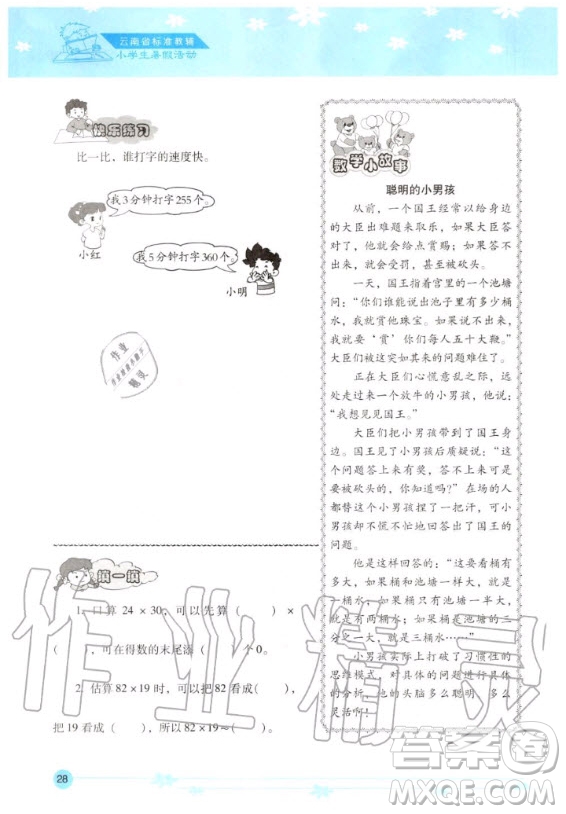 云南省标准教辅
小学生暑假活动
快乐练习
比一比，谁打字的速度快。
我3分钟打字255个。
小红
我5分钟打字360个。
小明
填一填
1. 口算 24×30，可以先算（　　）×
（　　），可在得数的末尾添（　　）个0。
2. 估算 82×19 时，可以把 82 看成（　　），
把 19 看成（　　），所以 82×19≈（　　）。
28
数学小故事
聪明的小男孩
从前，一个国王经常以给身边
的大臣出难题来取乐，如果大臣答
对了，他就会给点赏赐；如果答不
出来，就会受罚，甚至被砍头。
一天，国王指着宫里的一个池塘
问：“你们谁能说出池子里有多少桶
水，我就赏他珠宝。如果说不出来，
我就要‘赏’你们每人五十大鞭。”
大臣们被这突如其来的问题难住了。
正在大臣们心慌意乱之际，
远处走过来一个放牛的小男孩，他说：
“我想见见国王。”
大臣们把小男孩带到了国王身
边。国王见了小男孩后质疑说：“这
个问题答上来有奖，答不上来是要
被砍头的，你知道吗？”在场的人
都替这个小男孩捏了一把汗，可小
男孩却不慌不忙地说出了国王
的问题。
他是这样回答的：“这要看桶有
多大，如果桶和池塘一样大，就是
一桶水；如果桶只有池塘一半大，
就是两桶水；如果桶是池塘的三分
之一大，就是三桶水……”
小男孩实际上打破了习惯性的
思维模式，对具体的问题进行具体
的分析，他的头脑多么聪明，多么
灵活啊！
作业精灵
答案圈
MXQE.COM